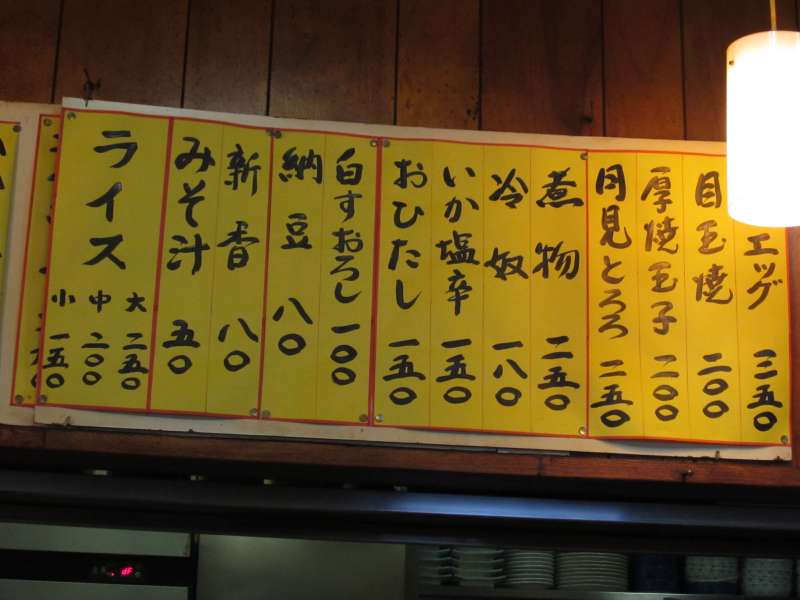 エッグ 三五〇
目玉焼 二〇〇
厚焼玉子 二〇〇
月見とろろ 二五〇
煮物 二五〇
冷奴 一八〇
いか塩辛 一五〇
おひたし 一五〇
白すおろし 一〇〇
納豆 八〇
新香 八〇
みそ汁 五〇
ライス
大 二五〇
中 二〇〇
小 一五〇